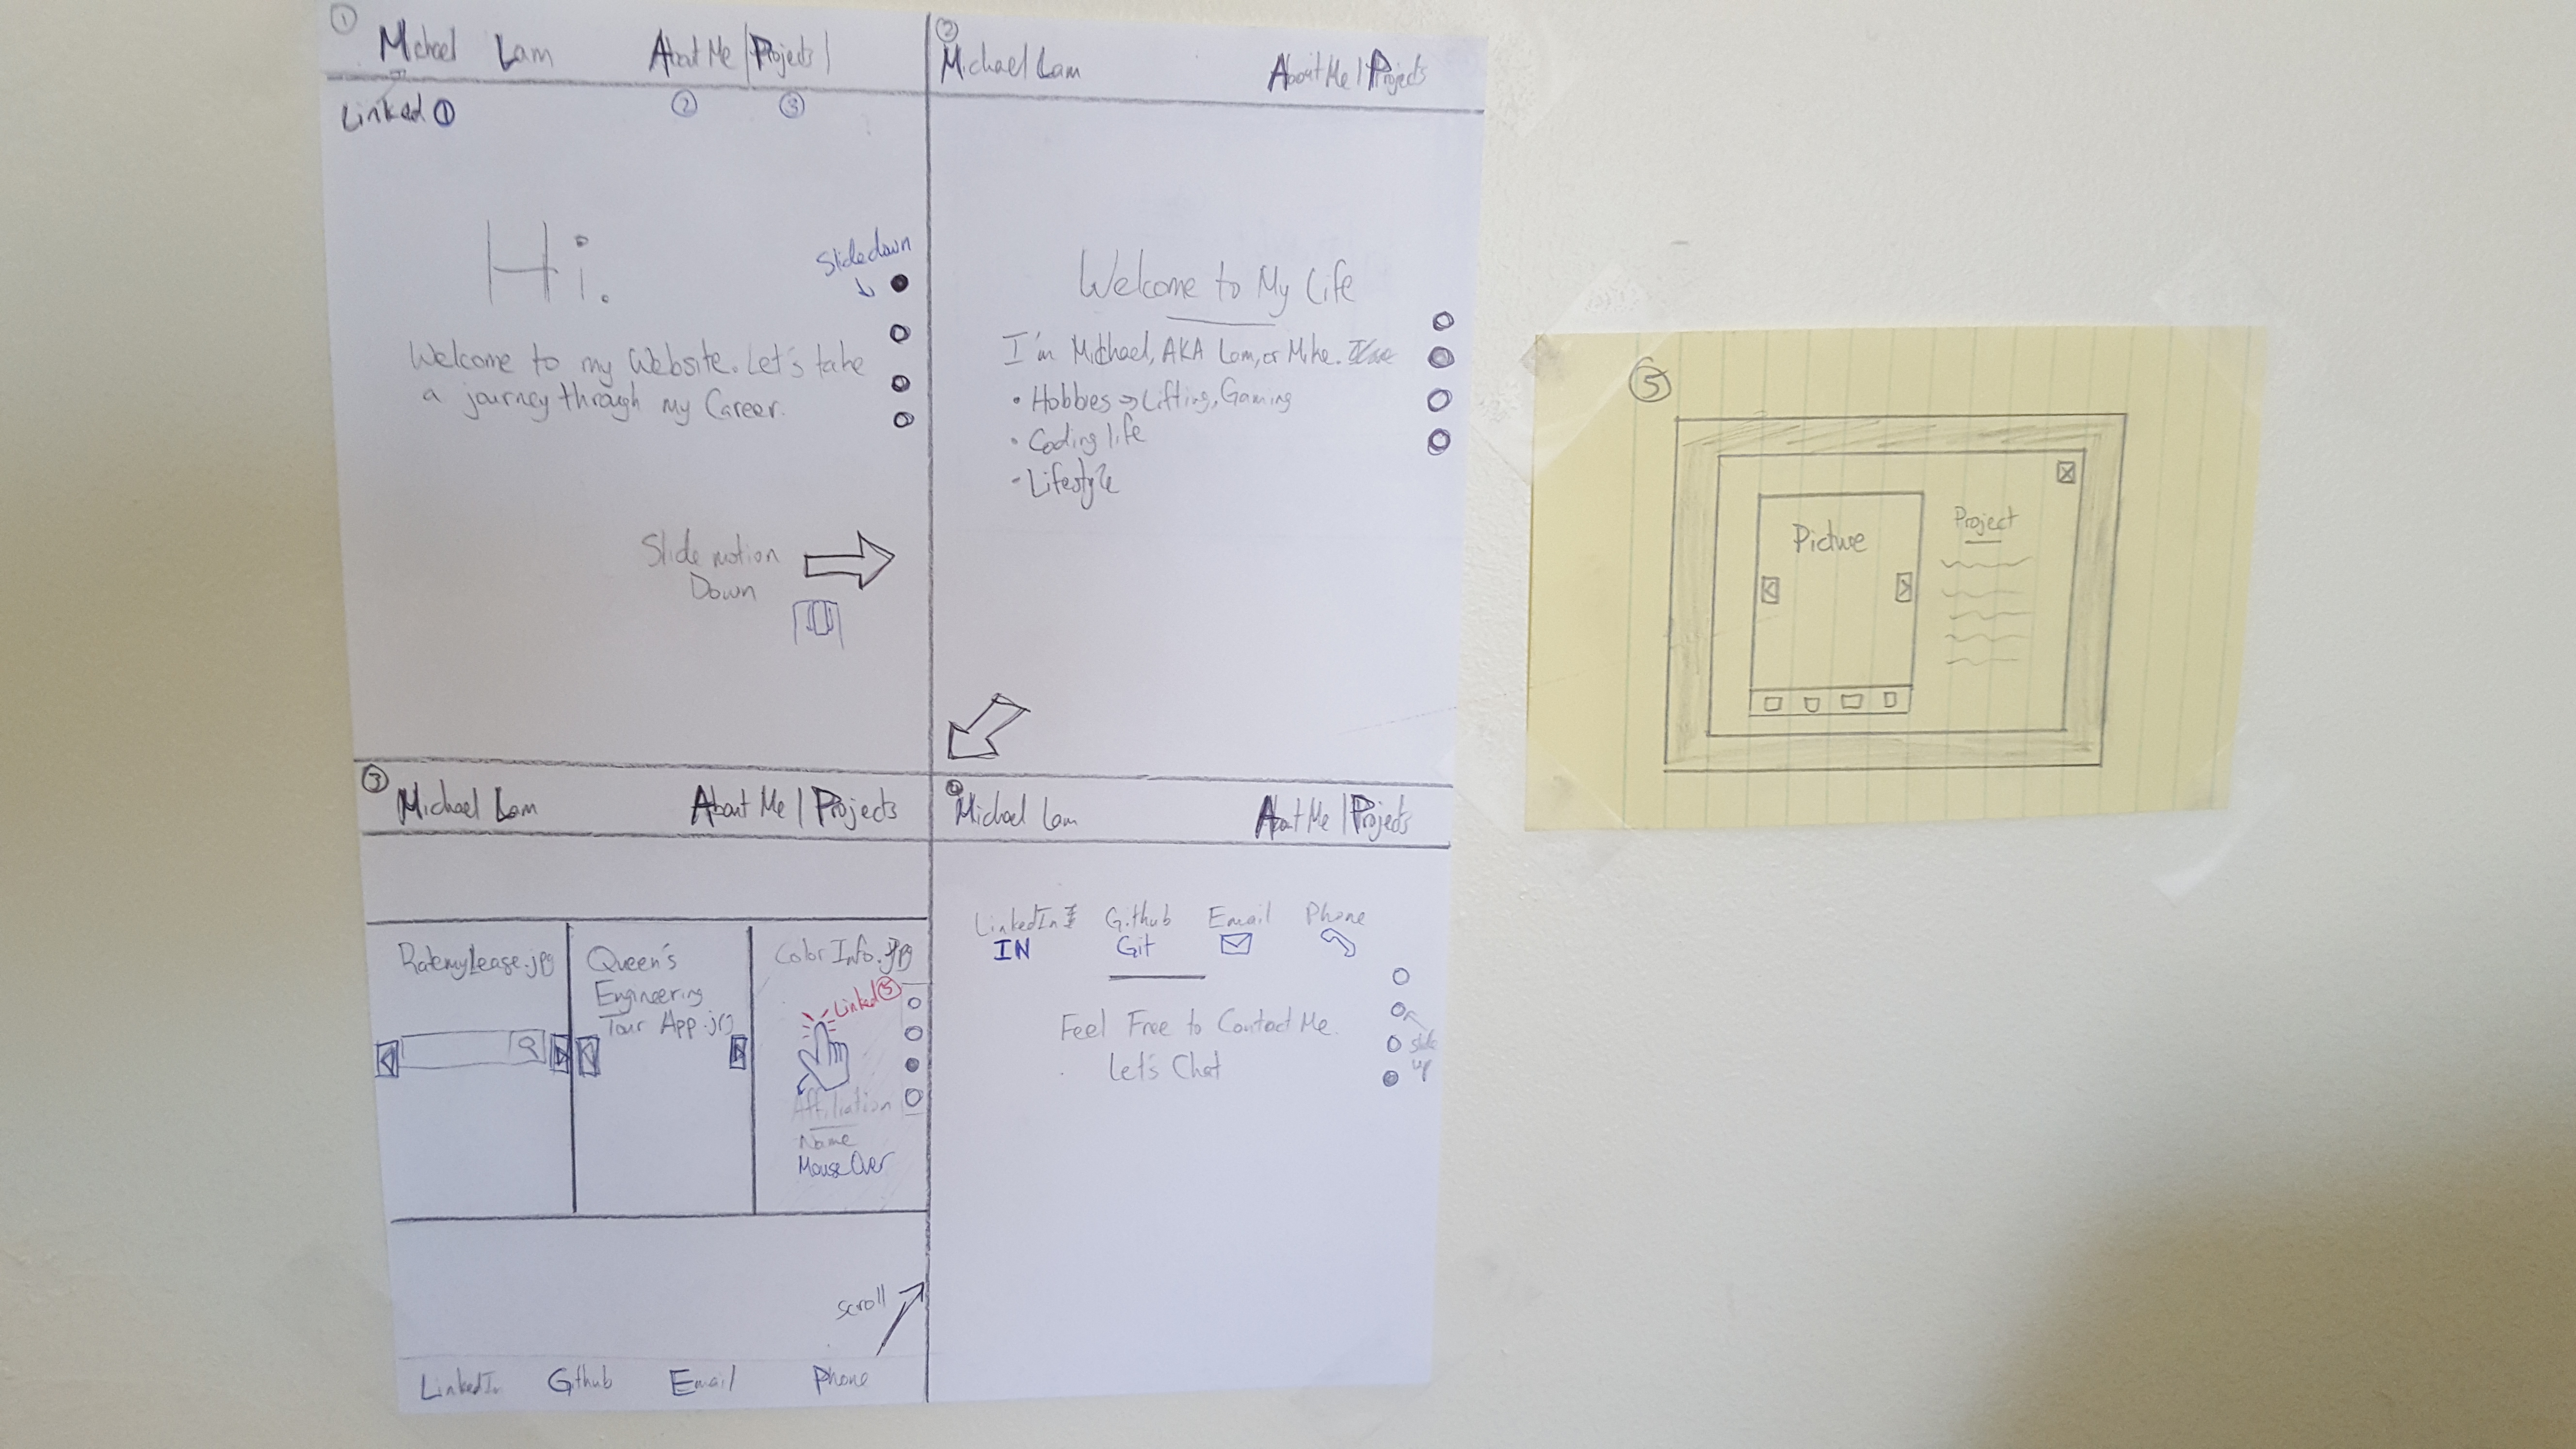 ①
Michael Lam About Me | Projects |
Linked ① ② ③
Hi.
Slide down
Welcome to my Website. Let's take
a journey through my Career.
Slide motion
Down
②
Michael Lam About Me | Projects
Welcome to My Life
I'm Michael, AKA Lam, or Mike.
• Hobbies → Lifting, Gaming
• Coding life
- Lifestyle
③
Michael Lam About Me | Projects
RatemyLease.jpg
Queen's
Engineering
Tour App.jpg
Color Info.jpg
Linked ⑤
Affiliation
Name
Mouse Over
scroll
LinkedIn Github Email Phone
④
Michael Lam About Me | Projects
LinkedIn Github Email Phone
IN Git
Feel Free to Contact Me.
Let's Chat
slide
up
⑤
Picture
Project